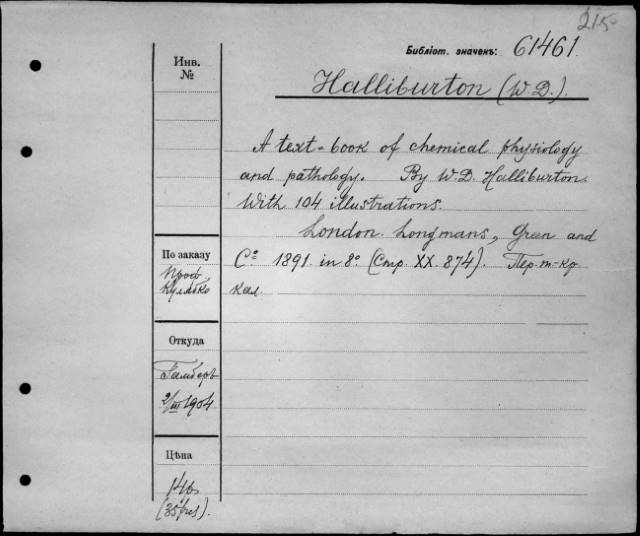 215
Библіот. значекъ: 61461.
Инв.
№
Halliburton (W. D.).
A text-book of chemical physiology
and pathology. By W. D. Halliburton.
With 104 illustrations.
London. Longmans, Green and
C° 1891. in 8° (Стр. XX. 874). Пер. т-кр
кал.
По заказу
Проф.
Кулябко
Откуда
Гамберъ
2/III 1904
Цѣна
(35 frcs).